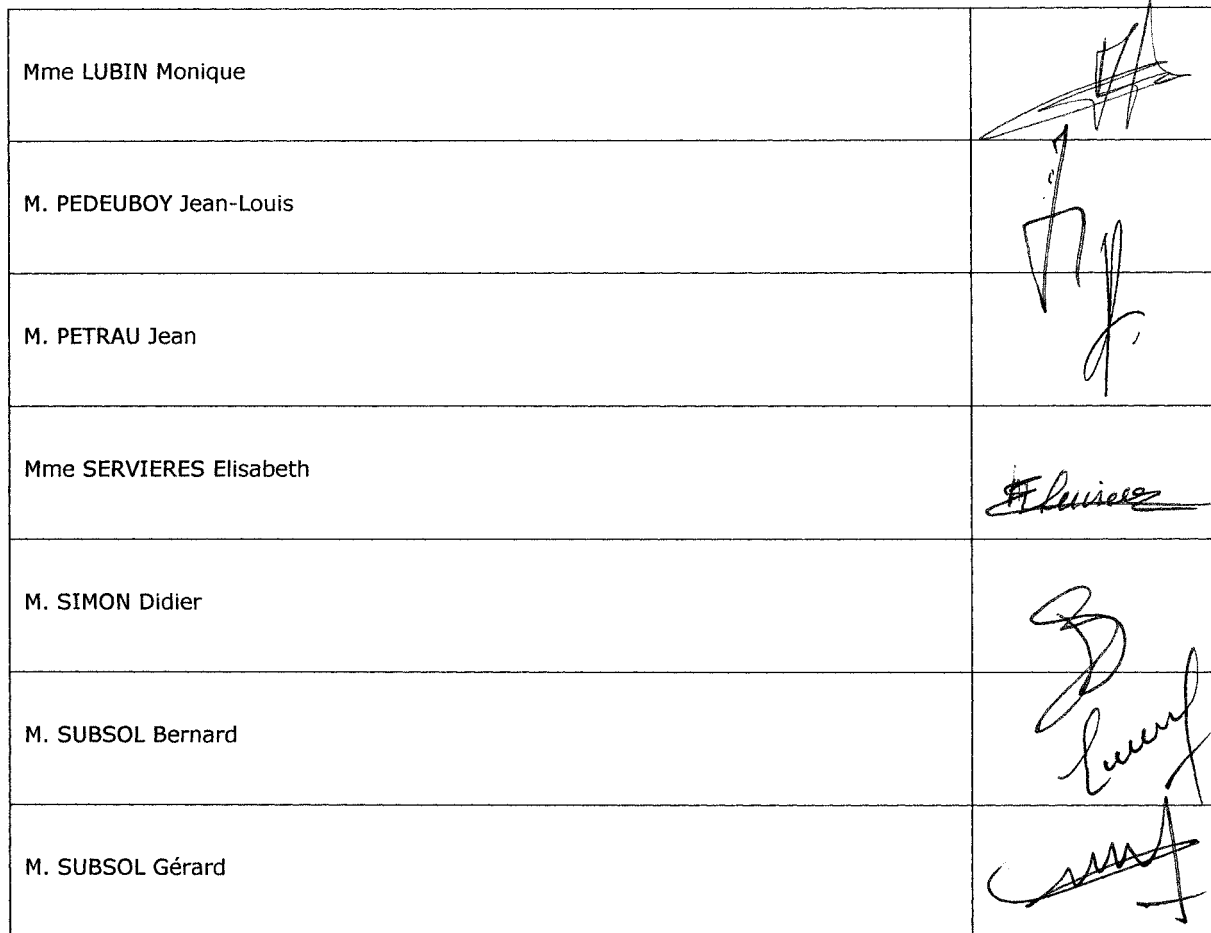 Mme LUBIN Monique
M. PEDEUBOY Jean-Louis
M. PETRAU Jean
Mme SERVIERES Elisabeth
M. SIMON Didier
M. SUBSOL Bernard
M. SUBSOL Gérard